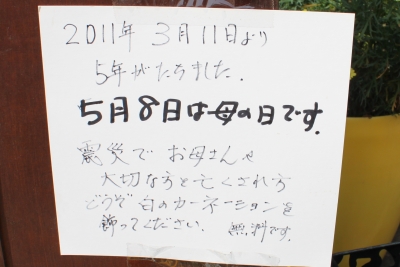 2011年 3月11日より
5年がたちました.
5月8日は母の日です.
震災で お母さんや
大切な方を亡くされ方
どうぞ 白のカーネーションを
飾ってください. 無料です.